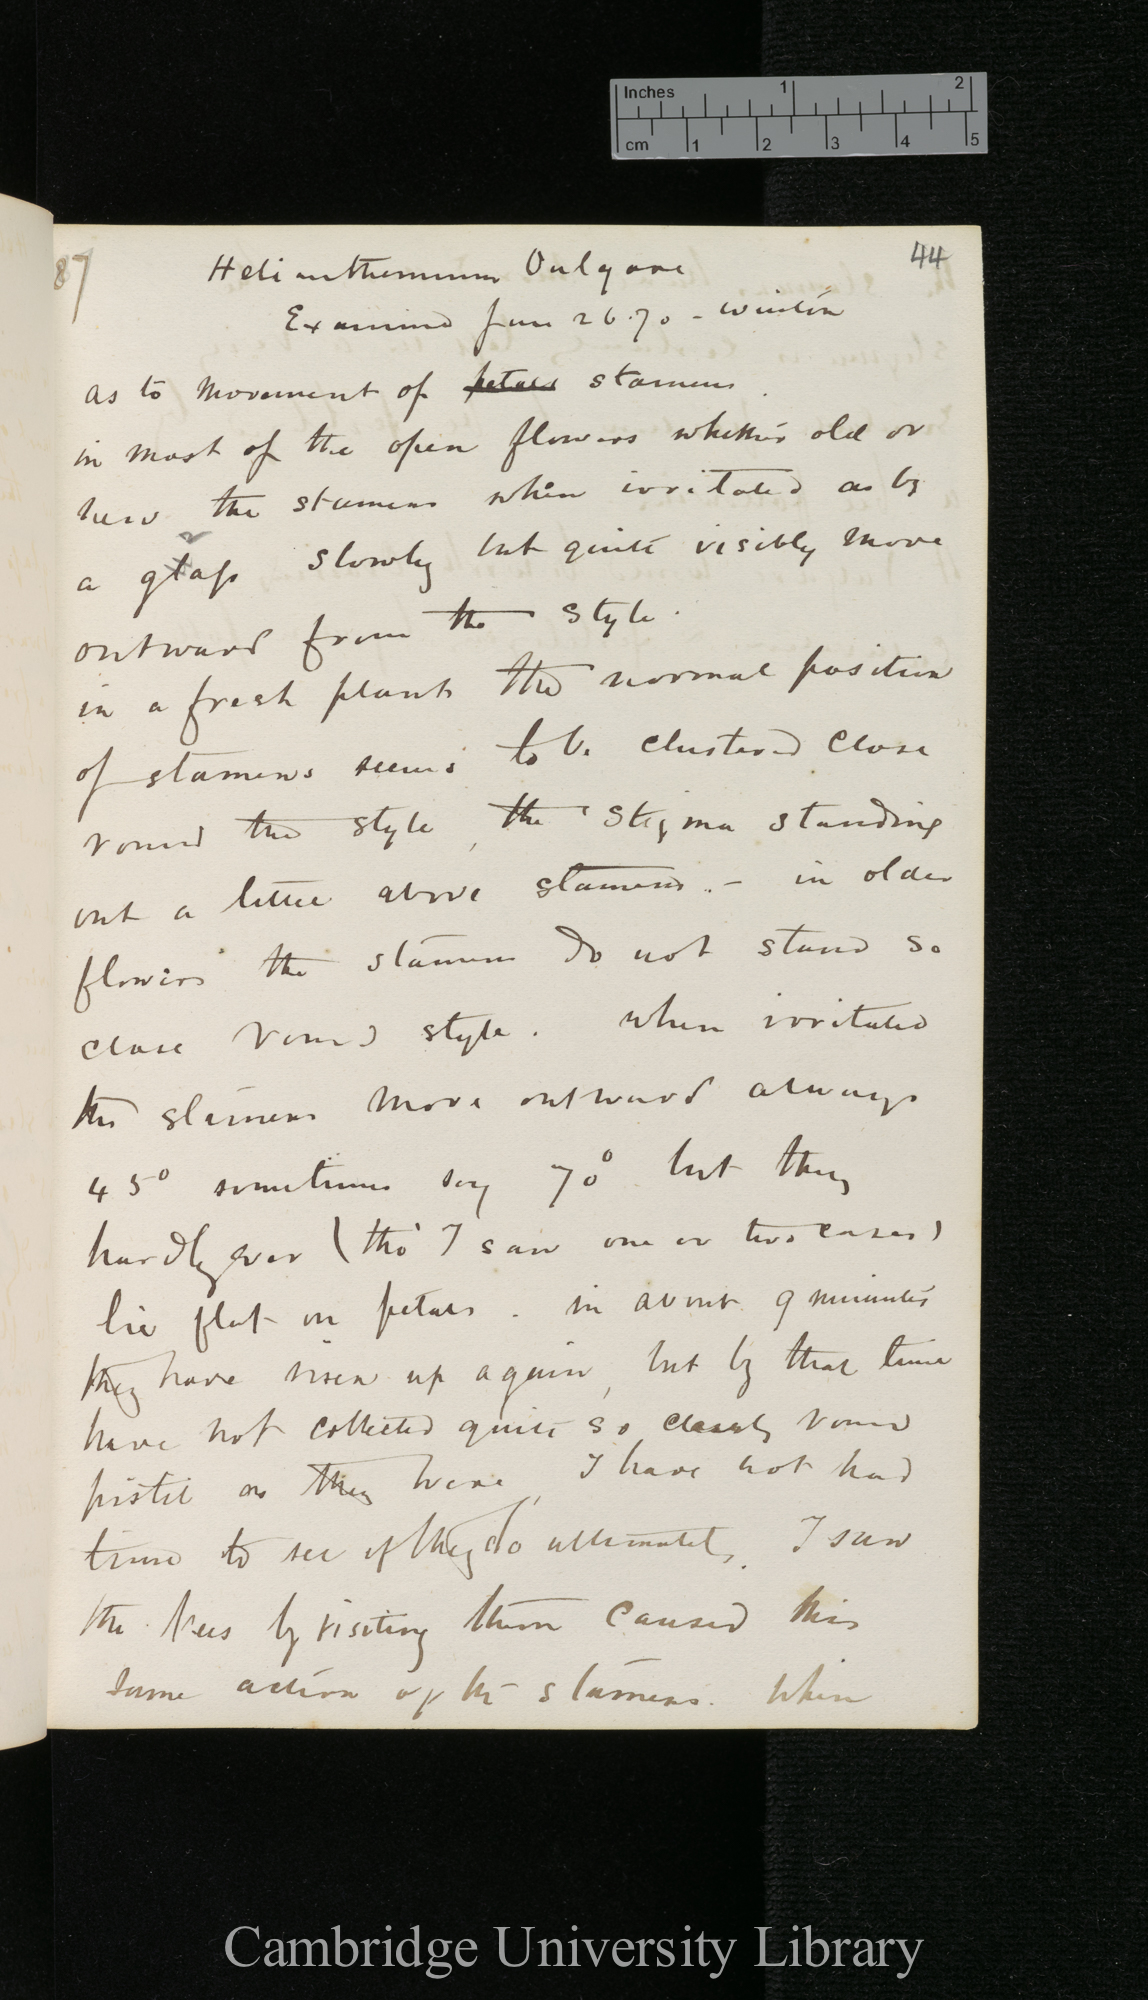 Inches 1 2
cm 1 2 3 4 5
87
44
Helianthemum Vulgare
Examined June 26. 70 - Winton
as to movement of petals stamens.
in most of the open flowers whether old or
new the stamens when irritated as by
a tap slowly but quite visibly move
outward from the style.
in a fresh plant the normal position
of stamens seems to be clustered close
round the style, the stigma standing
out a little above stamens. - in older
flowers the stamens do not stand so
close round style. when irritated
the stamens move outward always
45° sometimes say 70° but they
hardly ever (tho' I saw one or two cases)
lie flat on petals. in about 9 minutes
they have risen up again, but by that time
have not collected quite so closely round
pistil as they were, I have not had
time to see if they do ultimately. I saw
the bees by visiting them caused this
same action of the stamens. When
Cambridge University Library